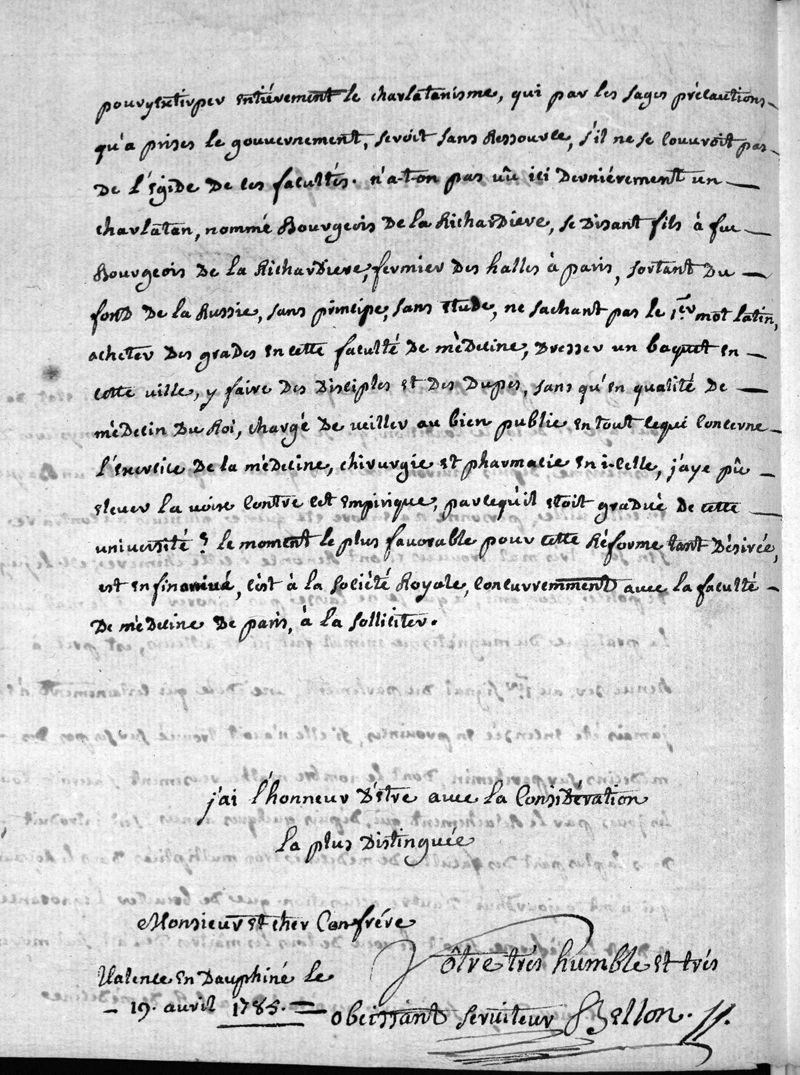 pour y extirper entiérement le charlatanisme, qui par les sages précautions
qu'a prises le gouvernement, seroit sans ressource, s'il ne se couvroit pas
de l'égide de ces facultés. n'a-t-on pas vû ici derniérement un
charlatan, nommé Bourgeois de la Richardiere, se disant fils à feu
Bourgeois de la Richardiere, fermier des halles à paris, sortant du
fond de la Russie, sans principe, sans etude, ne sachant pas le 1er mot latin,
acheter des grades en cette faculté de mèdecine, dresser un baquet en
cette ville, y faire des disciples et des dupes, sans qu'en qualité de
mèdecin du Roi, chargé de veiller au bien public en tout ce qui concerne
l'exercice de la mèdecine, chirurgie et pharmacie en i-celle, j'aye pû
elever la voix contre cet empirique, parcequ'il etoit gradué de cette
université? le moment le plus favorable pour cette réforme tant désirée,
est enfin arrivé, c'est à la société Royale, concurremment avec la faculté
de mèdecine de paris, à la solliciter.
j'ai l'honneur d'être avec la considération
la plus distinguée
Monsieur et cher Confrére
Vôtre trés humble et trés
Valence en Dauphiné le
19. avril 1785.
obeissant serviteur Bellon.